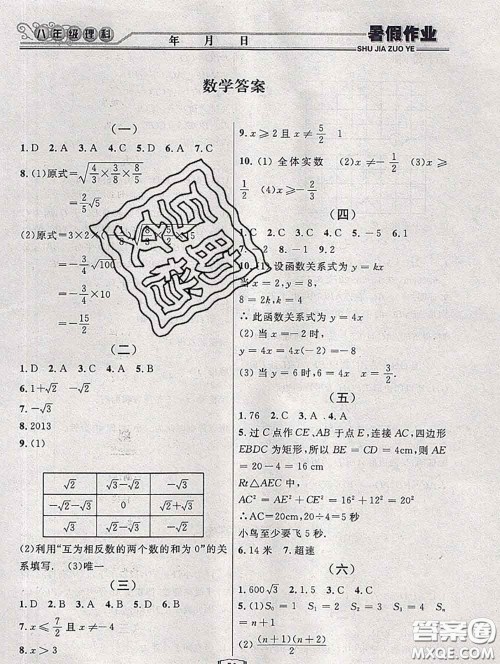 八年级理科
年 月 日
暑假作业
SHU JIA ZUO YE
数学答案
(一)
1.D 2.A 3.C 4.C 5.D 6.A 7.A
8.(1)原式=√(4/3×3/8×8/5)
=2/5√5
(2)原式=3×2×
=-3/4√100
=-3/4×10
=-15/2
(二)
1.D 2.A 3.C 4.A 5.B
6.1+√2 -√2
7.-√3
8.2013
9.(1)
√2 √3 -√3
-√2-√3 0 √2+√3
√3 -√3 -√2
(2)利用“互为相反数的两个数的和为0”的关
系填写. (3)唯一
(三)
1.D 2.B 3.A 4.C 5.C 6.A
7.x≤7/2且x≠-4
8.x≠4
9.x≥2且x≠5/2 1
10.(1)全体实数 (2)x≠-1 (3)x≥
1/2 (4)x≥-2/3
(四)
1.C 2.A 3.C 4.C 5.-5 6.1
7.-2 8.-1 9.2
10.(1)设函数关系式为y=kx
当x=2,y=8,
8=2k,k=4
∴此函数关系式为y=4x
(2)当x=-2时,
(3)当y=6时,6=4x,x=3/2
(五)
1.76 2.C 3.A 4.A
5.过C点作CE、AB于点E,连接AC,四边形
EBDC为矩形,所以BE=CD=4cm,则AE
=20-4=16cm
Rt△AEC中,
∴AC=20cm,20÷4=5秒
小鸟至少要飞5秒.
6.14米 7.超速
(六)
1.600√3 2.1.5 3.C 4.A
(2)(n+1)(n+2)/2
答案圈
MXQE.COM